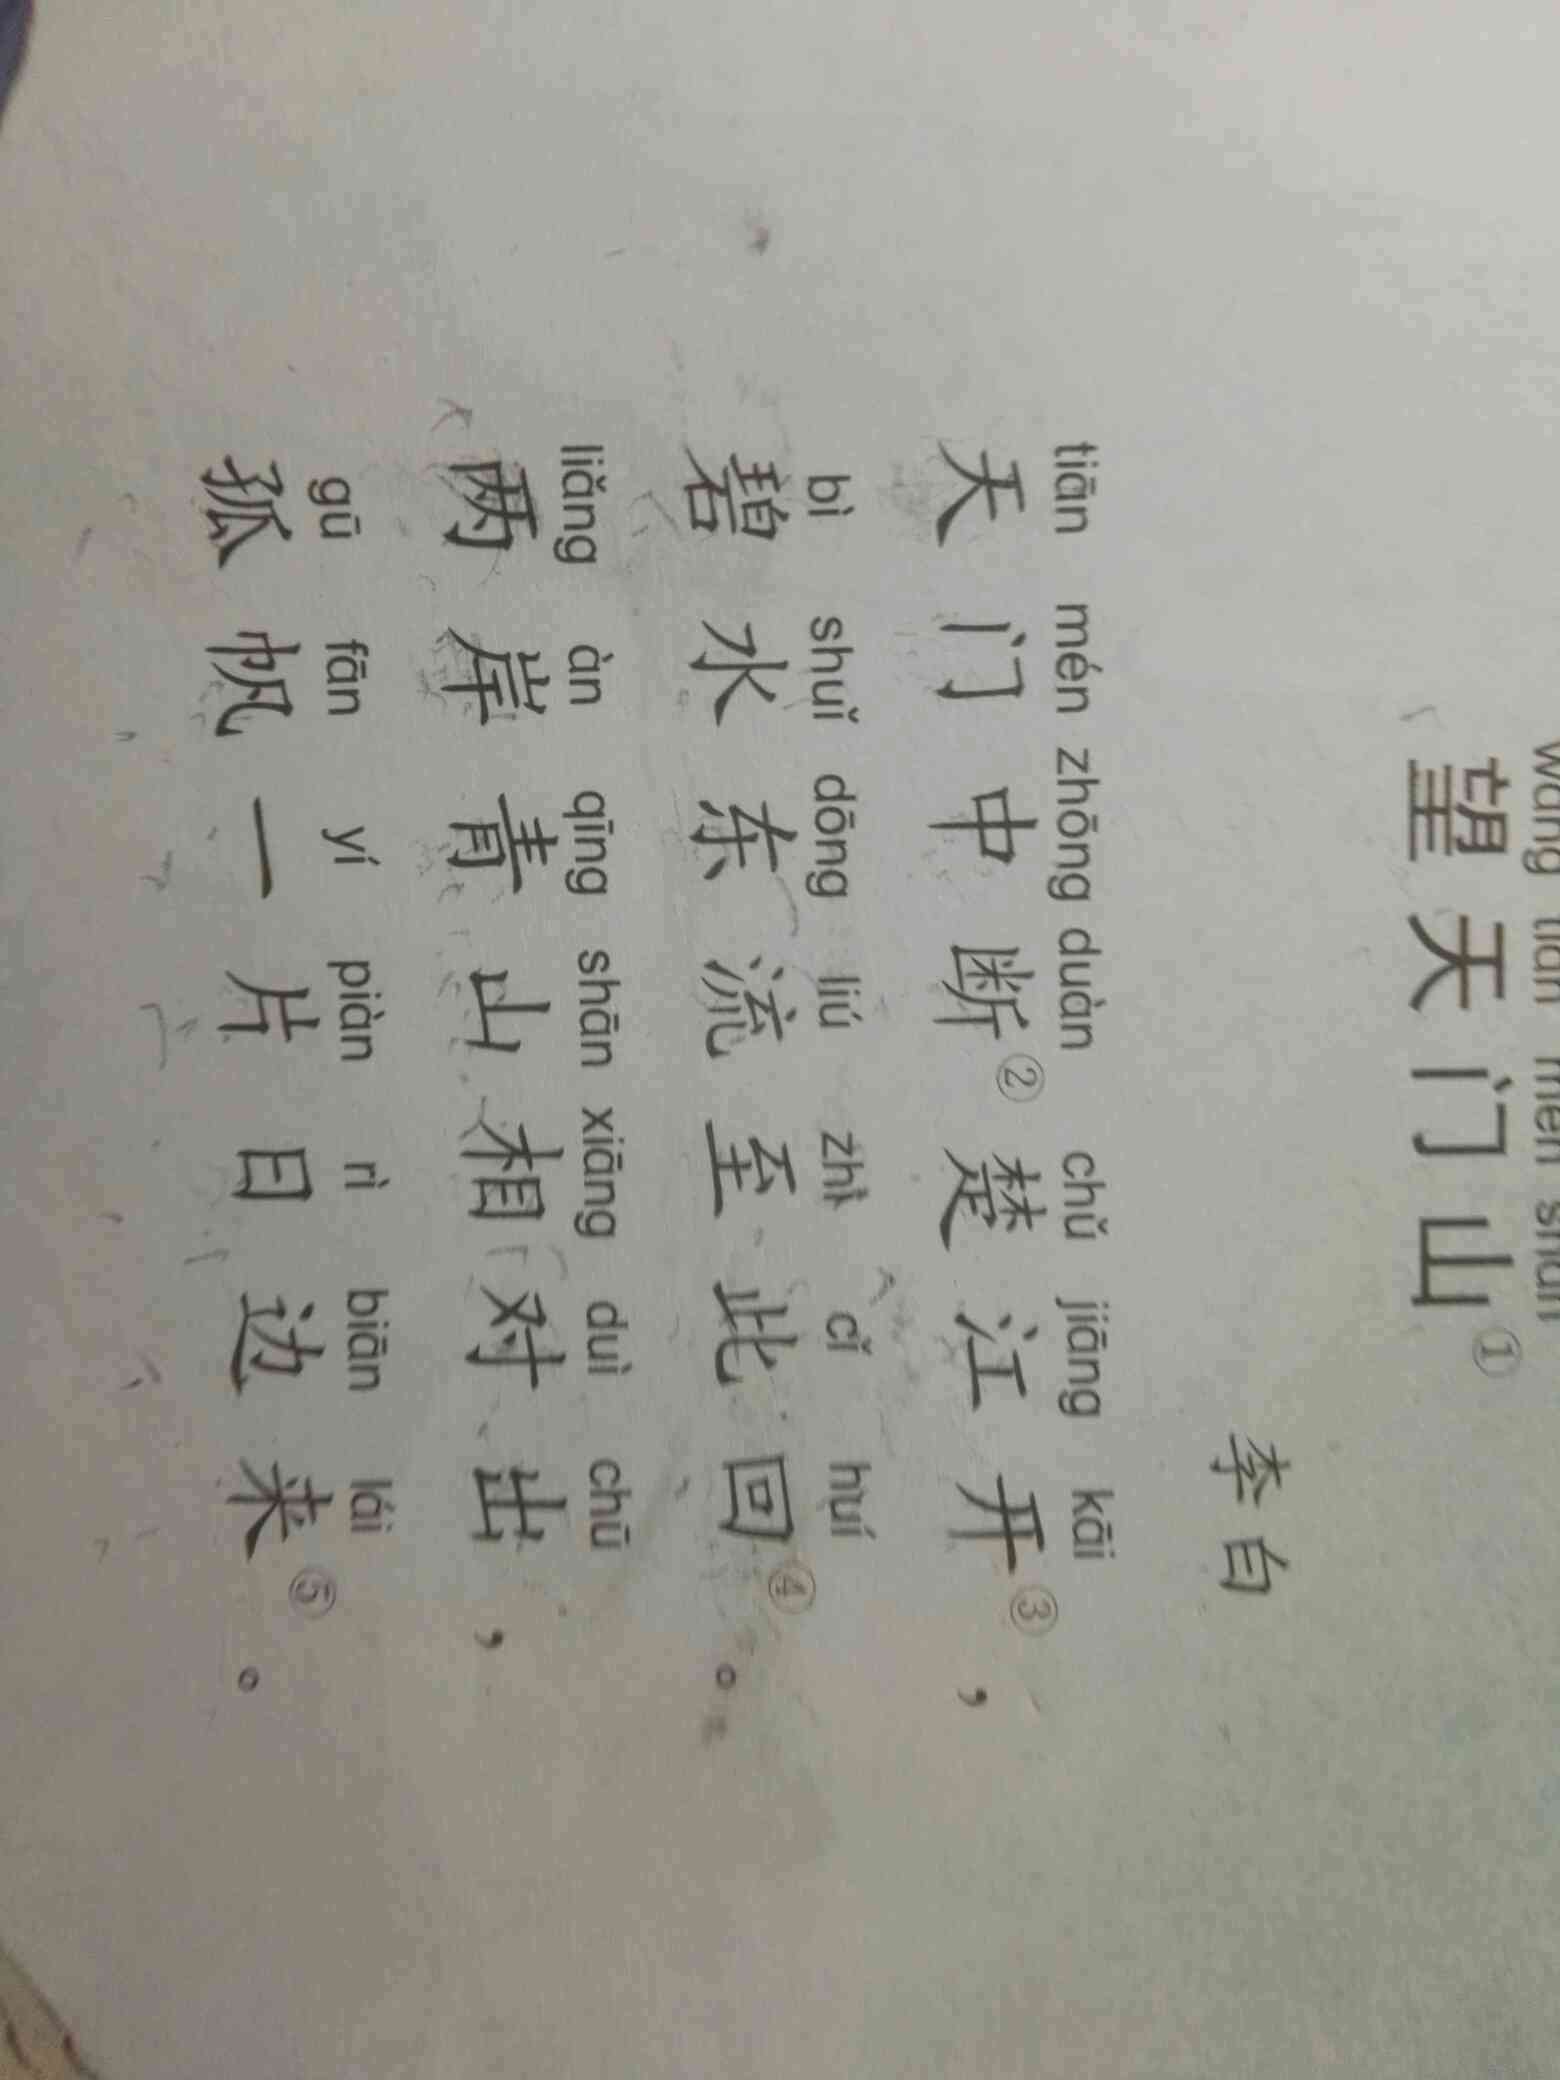 wàng tiān mén shān
望天门山①
李白
tiān mén zhōng duàn chǔ jiāng kāi
天门中断②楚江开③，
bì shuǐ dōng liú zhì cǐ huí
碧水东流至此回④。
liǎng àn qīng shān xiāng duì chū
两岸青山相对出，
gū fān yí piàn rì biān lái
孤帆一片日边来⑤。